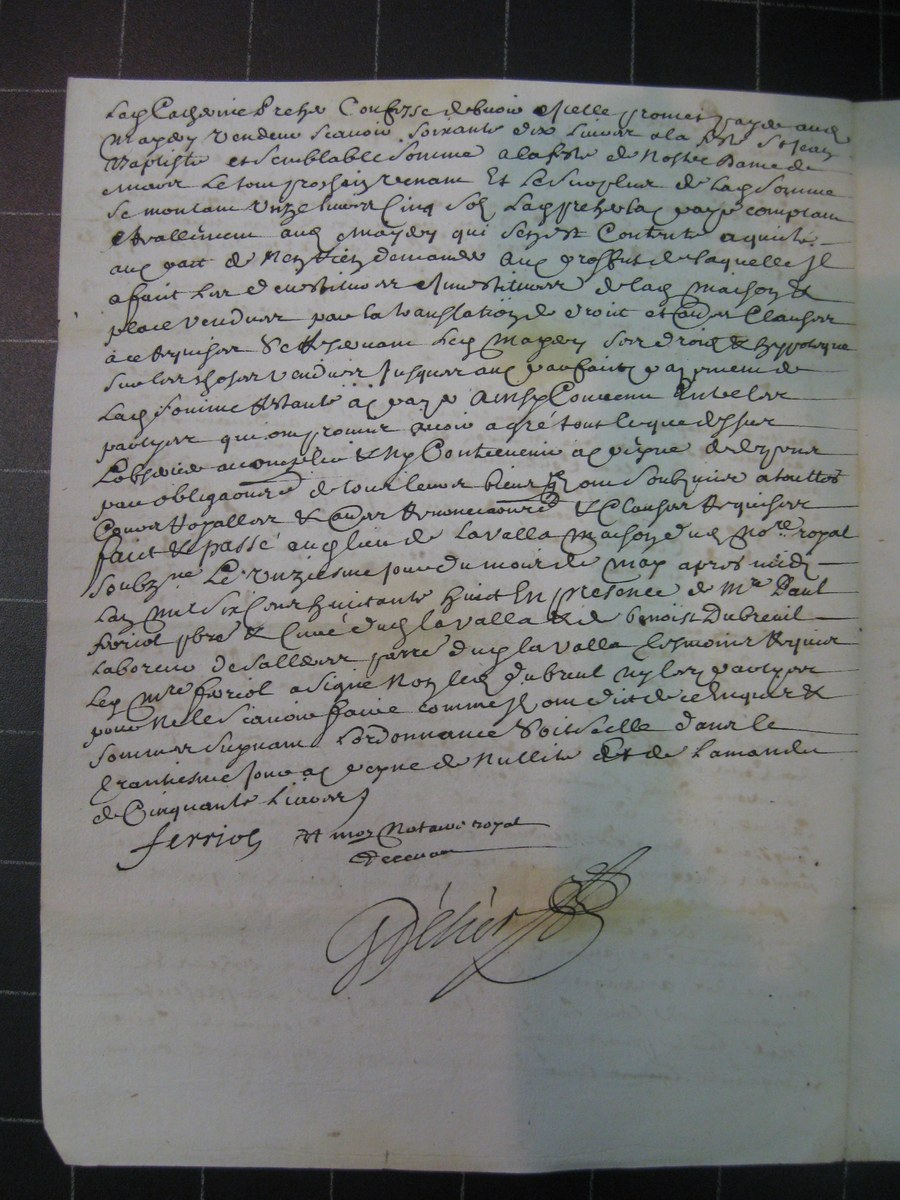 Lad Catherine Preher Confesse debvoir et icelle promet payer aud
Mayery vendeur scavoir soixante dix livres a la feste St Jean
Baptiste et semblable somme a la feste de Nostre Dame de
mars le tout prochain venant Et le surplus de lad somme
se montant unze livres Cinq solz Lad preher la paye comptant
et reallement aud mayery qui sen est contenté a quicté
aux pact de nen rien demander aux proffit de laquelle Il
a faict les devestitures et investitures de lad maison &
place vendues par la translation de droit et autres Clauses
à ce requises Se reservant led Mayery ses droictz & hypoteque
sur les choses vendues Jusques aux parfaict payement de
lad somme restante à paye ainsy Convenu Entre les
partyes qui ont promis avoir agré tout ce que dessus
L'observer accomplir & ny Contrevenir a peyne de despens
par obligaōns de tous leurs biens quont soubzmis a touttes
Cours Royalles & autres Renonciaōns & Clauses Requises
faict & passé aud lieu de Lavalla maison dud Nore royal
soubzné Le unziesme jour du mois de may apres midy
Lan mil six cens huictante huict En presence de Mre Paul
ferriol pbre & Curé dud lavalla & de benoist Dubreuil
laboreur de salleres parre dud lavalla tesmoins Requis
Led Mre ferriol a signé non led dubreuil ny les partyes
pour ne le scavoir faire comme Il ont dict de ce enquis &
sommes suyvant L'ordonnance Soit seellé dans le
trantiesme jour a peyne de nullité et de Lamande
de Cinquante Livres
ferriol & moy Notaire royal
recevant